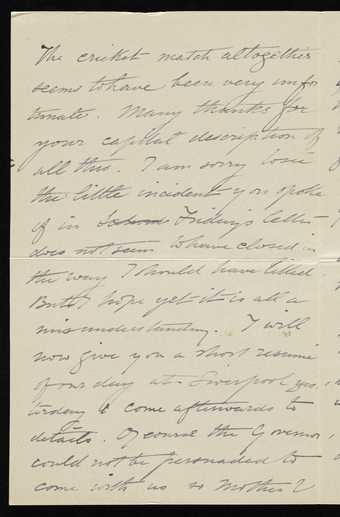 The cricket match altogether
seems to have been very unfor
tunate. Many thanks for
your capital description of
all this. I am sorry to see
the little incident you spoke
of in Friday's letter
does not seem to have closed in
the way I should have liked.
But I hope yet it is all a
misunderstanding. I will
now give you a short resumé
of our day at Liverpool yes,
terday & come afterwards to
details. Of course the Governor,
could not be persuaded to
come with us so Mother &